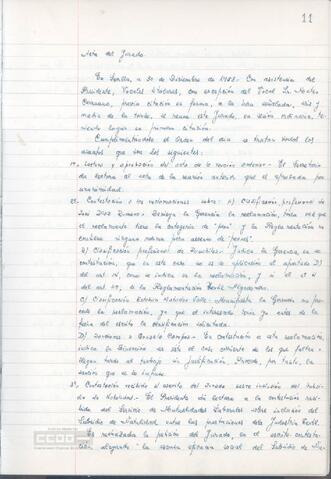 11
Acta del Jurado.
En Sevilla, a 30 de Diciembre de 1958.- Con asistencia del
Presidente, Vocales titulares, con excepción del Vocal Sr. Montes
, previa citación en forma, a la hora señalada, seis y
media de la tarde, se reune este Jurado, en sesión ordinaria, te-
niendo lugar en primera citación.
Cumplimentándose el Orden del día se tratan todos los
asuntos que son los siguientes:
1º.- Lectura y aprobación del acta de la sesión anterior.- El Secretario
da lectura al acta de la sesión anterior que es aprobada por
unanimidad.
2º.- Contestación a las reclamaciones sobre: A) Clasificación profesional de
José Díaz Romero.- Deniega la Gerencia la reclamación, toda vez que
el reclamante tiene la categoría de "peón" y la Reglamentación no
establece ninguna norma para ascenso de "peones".
B) Clasificación profesional de .- Indica la Gerencia, en su
contestación, que en este caso no es de aplicación el apartado D)
del art. , como se indica en la reclamación, y si el
del art. , de la Reglamentación Textil Algodonera.
C) Clasificación Antonio Valle.- Manifiesta la Gerencia no pro-
cede la reclamación, ya que el interesado tenía ya antes de la
fecha del escrito la clasificación solicitada.
D) a Campos.- En contestación a esta reclamación,
indica la Dirección es este el acta corriente de los que faltan
algún tarde al trabajo sin justificación, procede, por tanto, la
sanción que se le impuso.
3º.- Contestación recibida al escrito del Jurado sobre inclusión del Subsi-
dio de Natalidad.- El Presidente da lectura a la contestación reci-
bida del Servicio de Mutualidades Laborales sobre inclusión del
Subsidio de Natalidad, entre las prestaciones de la Industria Textil.
Es rechazada la petición del Jurado, en el escrito contes-
tación alegando "la escasa eficacia social del Subsidio de Na-
CCOO